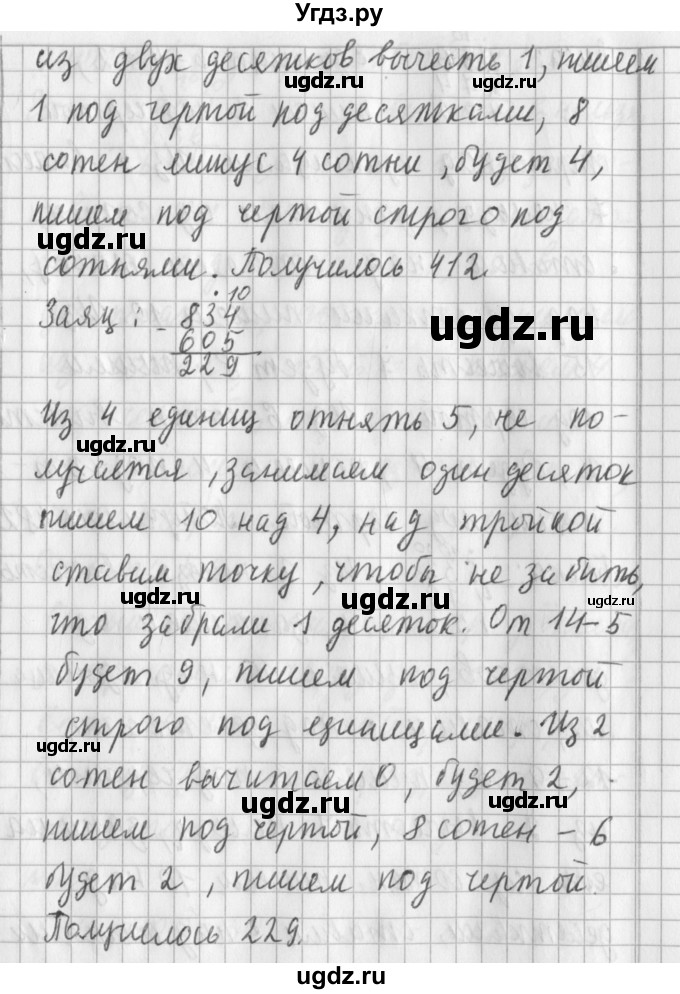 Угдз.ру
из двух десятков вычесть 1, пишем
1 под чертой под десятками, 8
сотен минус 4 сотни, будет 4,
пишем под чертой строго под
ugdz.ru
сотнями. Получилось 412
. 10
Заяц: - 834
ugdz.ru
605
ugdz.ru
229
Из 4 единиц отнять 5, не по-
ugdz.ru
лучается, занимаем один десяток
пишем 10 над 4, над тройкой
ставим точку, чтобы не забить,
ugdz.ru ugdz.ru ugdz.ru
что забрали 1 десяток. От 14-5
будет 9, пишем под чертой
строго под единицами. Из 2
ugdz.ru
сотен вычитаем 0, будет 2,
ugdz.ru ugdz.ru
пишем под чертой, 8 сотен - 6
будет 2, пишем под чертой.
Получилось 229.
ugdz.ru